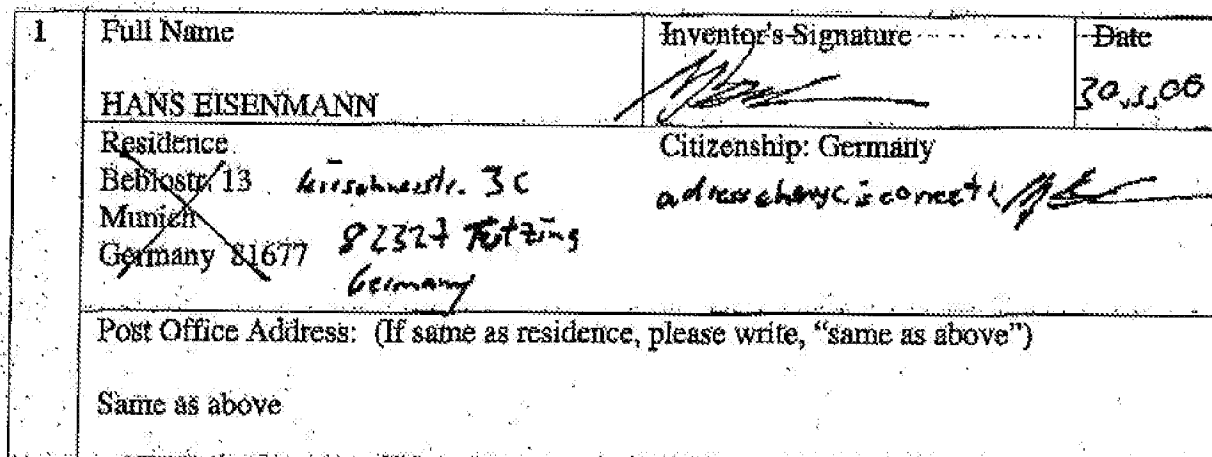 1
Full Name
HANS EISENMANN
Inventor's Signature
Date
30.1.06
Residence
Beblostr. 13
Munich
Germany 81677
3c
82327 Tutzing
Germany
Citizenship: Germany
adress change is correct
Post Office Address: (If same as residence, please write, “same as above”)
Same as above